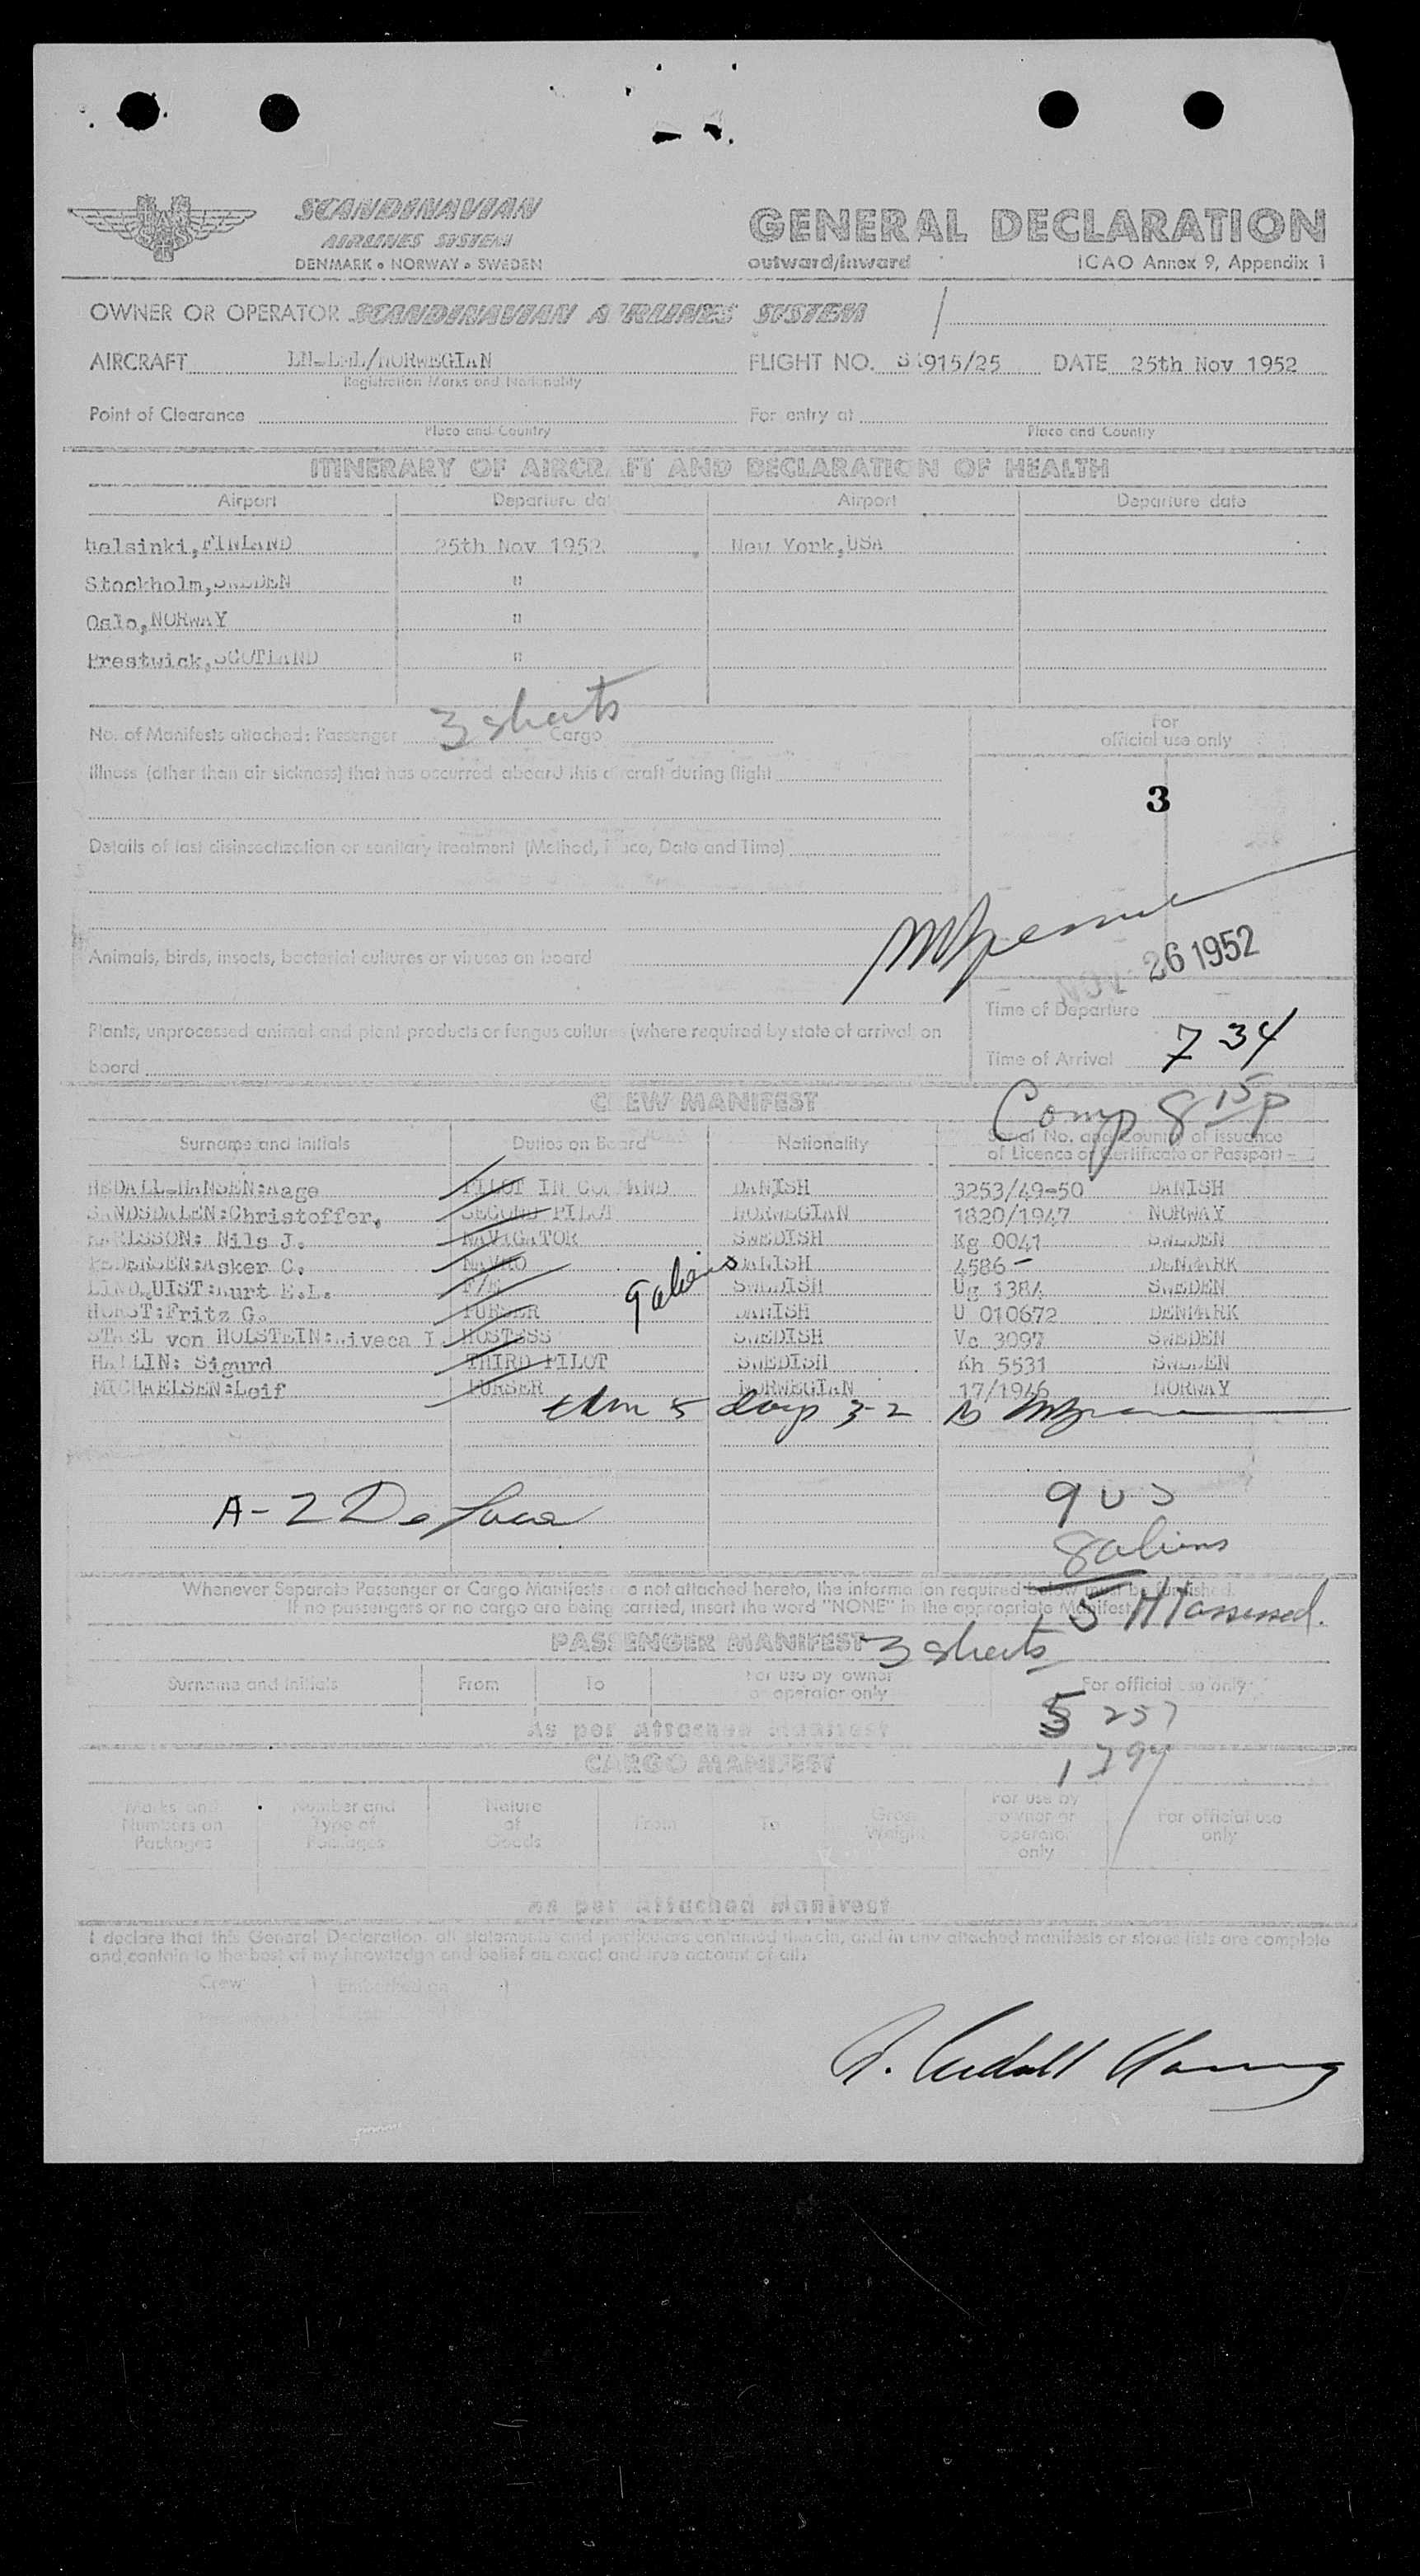 SCANDINAVIAN
AIRLINES SYSTEM
DENMARK • NORWAY • SWEDEN
GENERAL DECLARATION
outward/inward
ICAO Annex 9, Appendix 1
OWNER OR OPERATOR SCANDINAVIAN AIRLINES SYSTEM
AIRCRAFT /NORWEGIAN FLIGHT NO. 915/25 DATE 25th Nov 1952
Registration Marks and Nationality
Point of Clearance For entry at
Place and Country Place and Country
ITINERARY OF AIRCRAFT AND DECLARATION OF HEALTH
Airport Departure date Airport Departure date
Helsinki, FINLAND 25th Nov 1952. New York, USA
Stockholm, SWEDEN "
Oslo, NORWAY "
Prestwick, SCOTLAND "
No. of Manifests attached: Passenger 3 sheets Cargo
For
official use only
Illness (other than air sickness) that has occurred aboard this aircraft during flight
3
Details of last disinsectization or sanitary treatment (Method, Place, Date and Time)
Animals, birds, insects, bacterial cultures or viruses on board
NOV 26 1952
Time of Departure
Plants, unprocessed animal and plant products or fungus cultures (where required by state of arrival) on
board
Time of Arrival 7 34
Comp 8 15 p
CREW MANIFEST
Surname and Initials Duties on Board Nationality Serial No. and Country of issuance
of Licence or Certificate or Passport
HEDALL-HANSEN: Aage PILOT IN COMMAND DANISH 3253/49-50 DANISH
SANDSDALEN: Christoffer, SECOND PILOT NORWEGIAN 1820/1947 NORWAY
KARLSSON: Nils J. NAVIGATOR SWEDISH Kg 0041 SWEDEN
PEDERSEN: Asker C. DANISH 4586 DENMARK
LINDQUIST: Kurt E.L. F/E SWEDISH Ug 1384 SWEDEN
9 aliens
HORST: Fritz G. PURSER DANISH U 010672 DENMARK
STAEL von HOLSTEIN: Viveca I. HOSTESS SWEDISH Vc 3097 SWEDEN
HALLIN: Sigurd THIRD PILOT SWEDISH Kh 5531 SWEDEN
MICHAELSEN: Leif PURSER NORWEGIAN 17/1946 NORWAY
5 days 3-2
A-2 De Luca
9 US
8 aliens
Whenever Separate Passenger or Cargo Manifests are not attached hereto, the information required below must be furnished.
If no passengers or no cargo are being carried, insert the word "NONE" in the appropriate Manifest
5 HT assessed.
PASSENGER MANIFEST 3 sheets
Surname and Initials From To For use by owner
or operator only For official use only
5 257
As per attached Manifest
1794
CARGO MANIFEST
Marks and
Numbers on
Packages
Number and
Type of
Packages
Nature
of
Goods
From To Gross
Weight
For use by
owner or
operator
only
For official use
only
As per attached Manifest
I declare that this General Declaration, all statements and particulars contained therein, and in any attached manifests or stores lists are complete
and contain to the best of my knowledge and belief an exact and true account of all:
Crew Embarked on